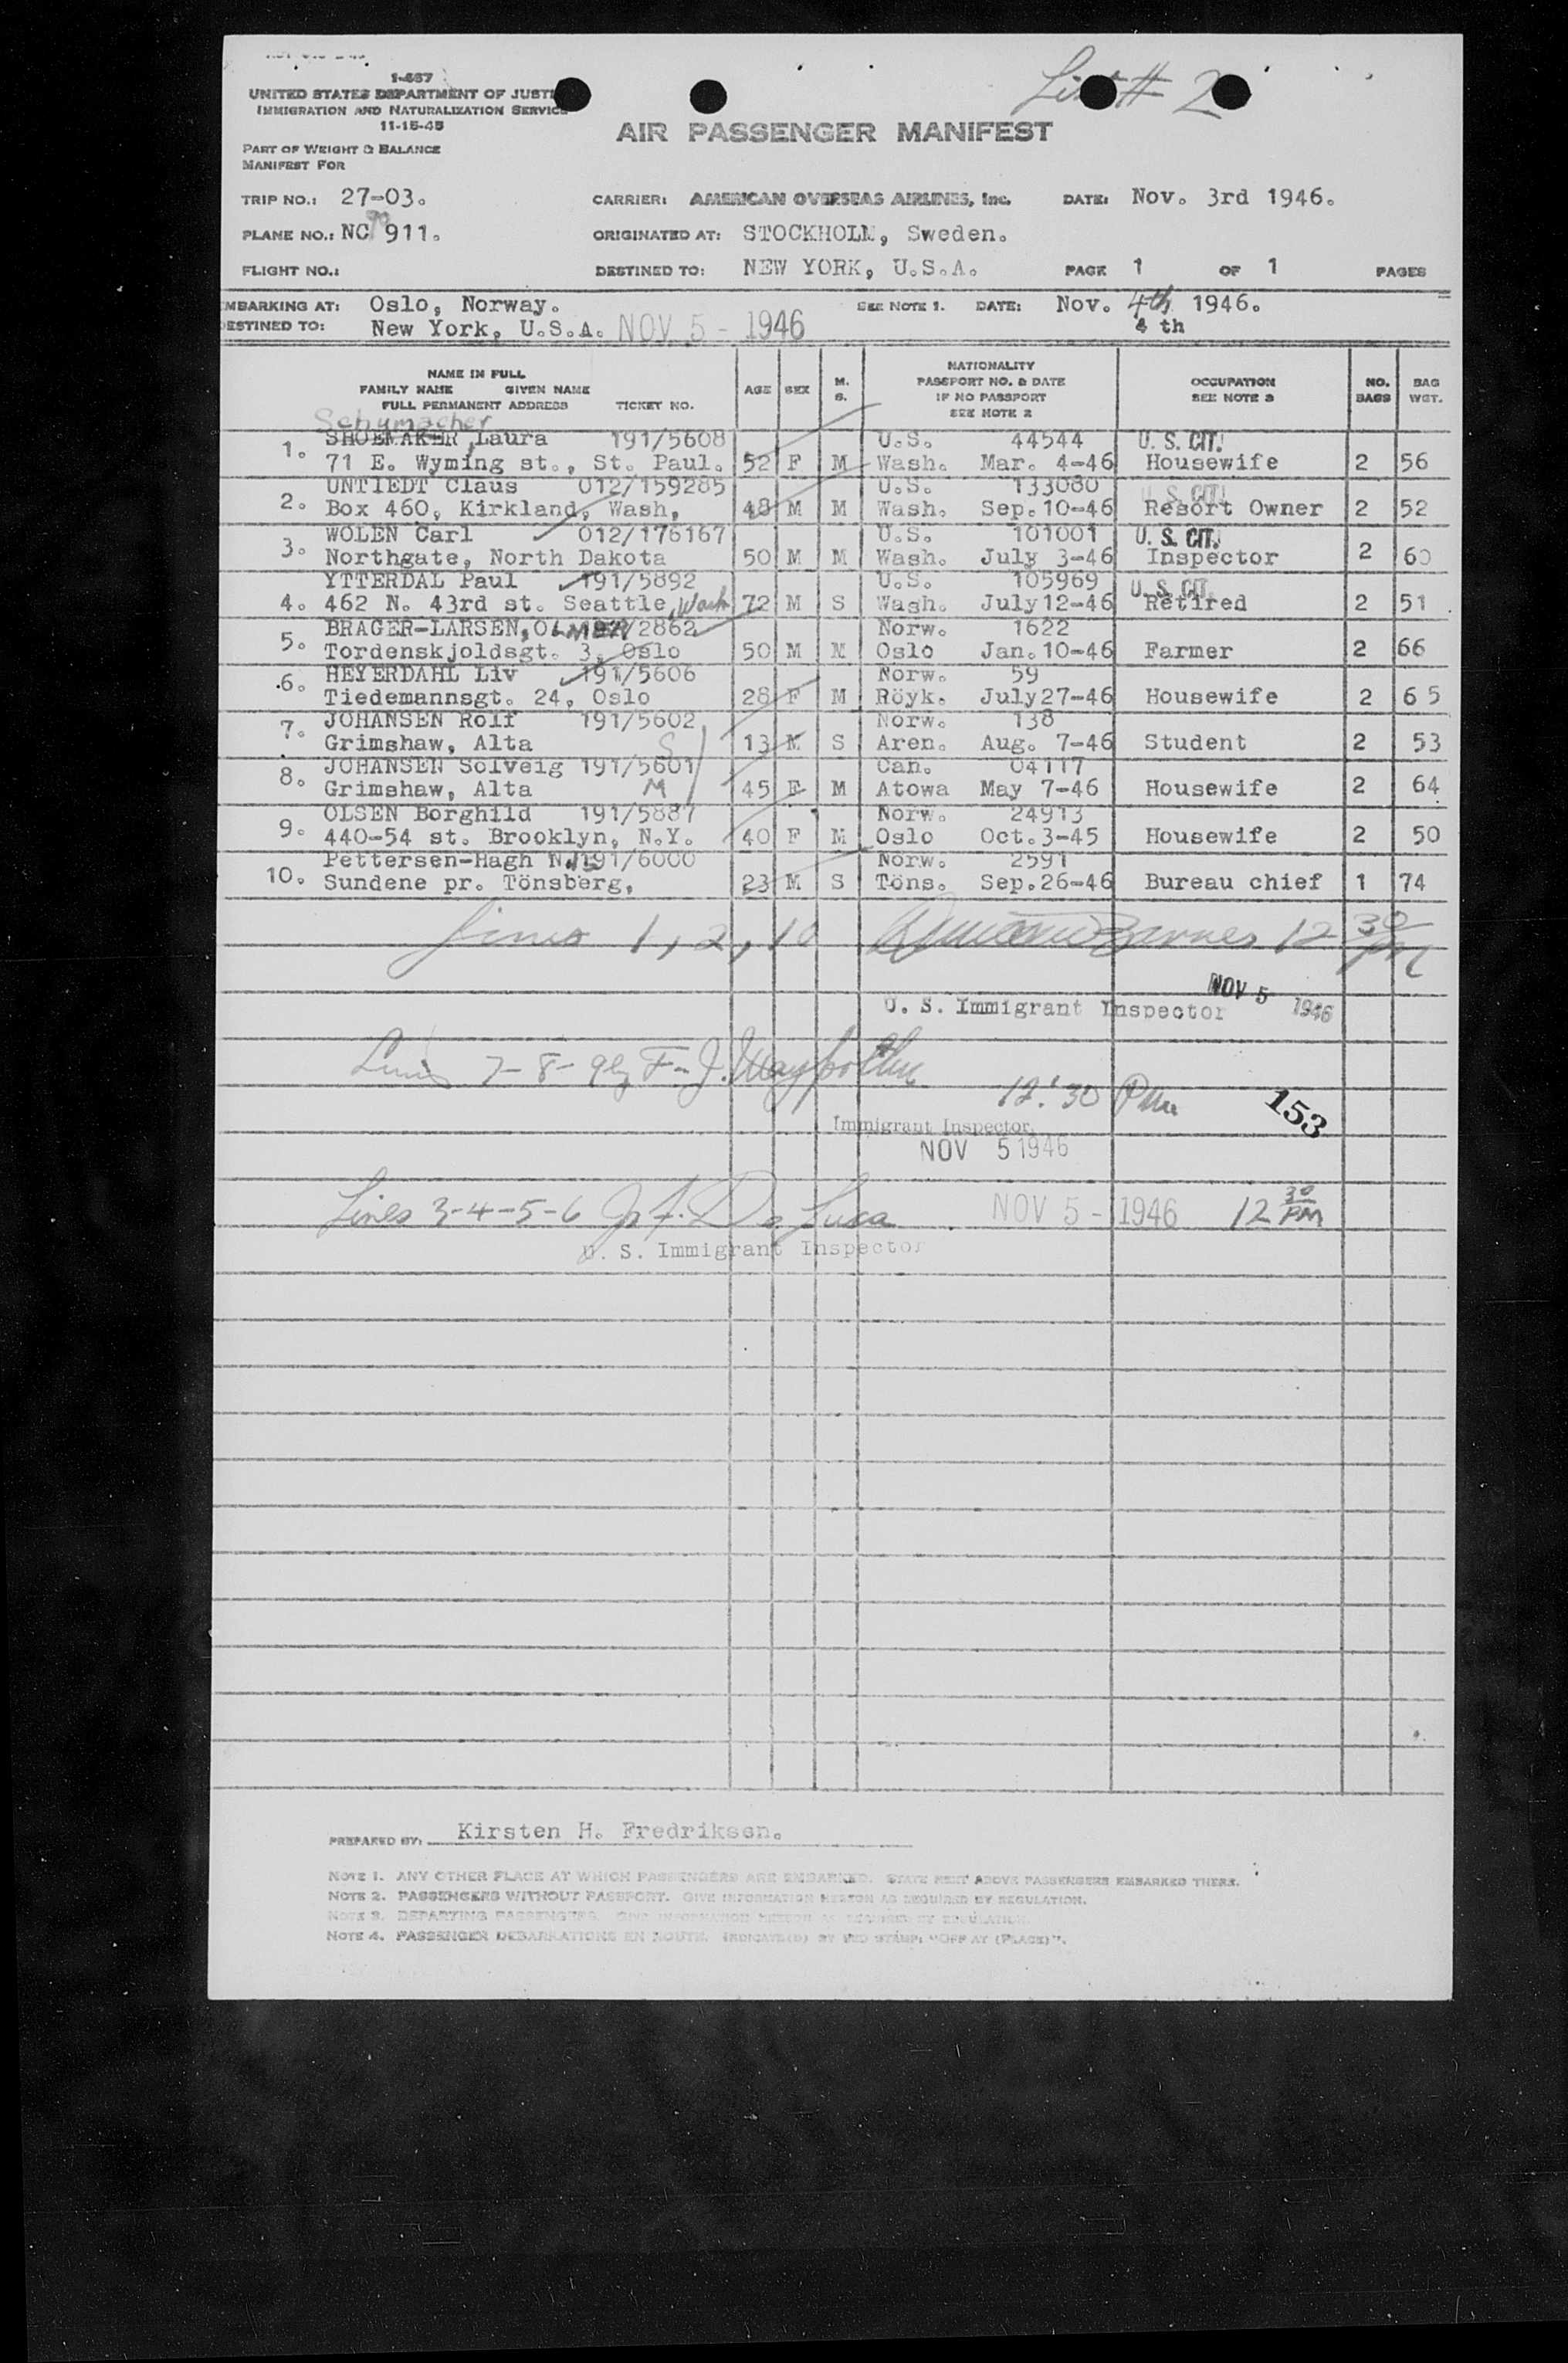 List # 2
1-467
UNITED STATES DEPARTMENT OF JUSTI
IMMIGRATION AND NATURALIZATION SERVICE
11-15-45
AIR PASSENGER MANIFEST
PART OF WEIGHT & BALANCE
MANIFEST FOR
TRIP NO.: 27-03. CARRIER: AMERICAN OVERSEAS AIRLINES, Inc. DATE: Nov. 3rd 1946.
PLANE NO.: NC 90 911. ORIGINATED AT: STOCKHOLM, Sweden.
FLIGHT NO.: DESTINED TO: NEW YORK, U.S.A. PAGE 1 OF 1 PAGES
MBARKING AT: Oslo, Norway. SEE NOTE 1. DATE: Nov. 4th 1946.
ESTINED TO: New York, U.S.A. NOV 5 - 1946 4 th
NAME IN FULL
FAMILY NAME GIVEN NAME
FULL PERMANENT ADDRESS TICKET NO. AGE SEX M. S. NATIONALITY PASSPORT NO. & DATE IF NO PASSPORT SEE NOTE 2 OCCUPATION SEE NOTE 3 NO. BAGS BAG WGT.
Schumacher
1. SHOEMAKER, Laura 191/5608 U.S. 44544 U. S. CIT.
71 E. Wyming st., St. Paul. 52 F M Wash. Mar. 4-46 Housewife 2 56
2. UNTIEDT Claus 012/159285 U.S. 133080 U. S. CIT.
Box 460, Kirkland, Wash, 48 M M Wash. Sep.10-46 Resort Owner 2 52
3. WOLEN Carl 012/176167 U.S. 101001 U. S. CIT.
Northgate, North Dakota 50 M M Wash. July 3-46 Inspector 2 60
YTTERDAL Paul 191/5892 U.S. 105969 U. S. CIT.
4. 462 N. 43rd st. Seattle, Wash 72 M S Wash. July12-46 Retired 2 51
5. BRAGER-LARSEN, /2862 Norw. 1622
Tordenskjoldsgt. 3, Oslo 50 M M Oslo Jan.10-46 Farmer 2 66
6. HEYERDAHL Liv 191/5606 Norw. 59
Tiedemannsgt. 24, Oslo 28 F M Röyk. July27-46 Housewife 2 65
7. JOHANSEN Rolf 191/5602 Norw. 138
Grimshaw, Alta S 13 M S Aren. Aug. 7-46 Student 2 53
8. JOHANSEN Solveig 191/5601 Can. 04117
Grimshaw, Alta M 45 F M Atowa May 7-46 Housewife 2 64
9. OLSEN Borghild 191/5887 Norw. 24913
440-54 st. Brooklyn, N.Y. 40 F M Oslo Oct.3-45 Housewife 2 50
Pettersen-Hagh 191/6000 Norw. 2591
10. Sundene pr. Tönsberg, 23 M S Töns. Sep.26-46 Bureau chief 1 74
Lines 1, 2, 10 Barnes 12 30 PM
NOV 5 1946
U. S. Immigrant Inspector
Lines 7-8-9 by F. J.
12:30 Pm
153
Immigrant Inspector
NOV 5 1946
Lines 3-4-5-6 De Luca NOV 5 - 1946 12 30 PM
U. S. Immigrant Inspector
PREPARED BY: Kirsten H. Fredriksen.
NOTE 1. ANY OTHER PLACE AT WHICH PASSENGERS ARE EMBARKED. STATE NEXT ABOVE PASSENGERS EMBARKED THERE.
NOTE 2. PASSENGERS WITHOUT PASSPORT. GIVE INFORMATION HEREON AS REQUIRED BY REGULATION.
NOTE 3. DEPARTING PASSENGERS. GIVE INFORMATION HEREON AS REQUIRED BY REGULATION.
NOTE 4. PASSENGER DEBARKATIONS EN ROUTE. INDICATE(D) BY RED STAMP: "OFF AT (PLACE)".